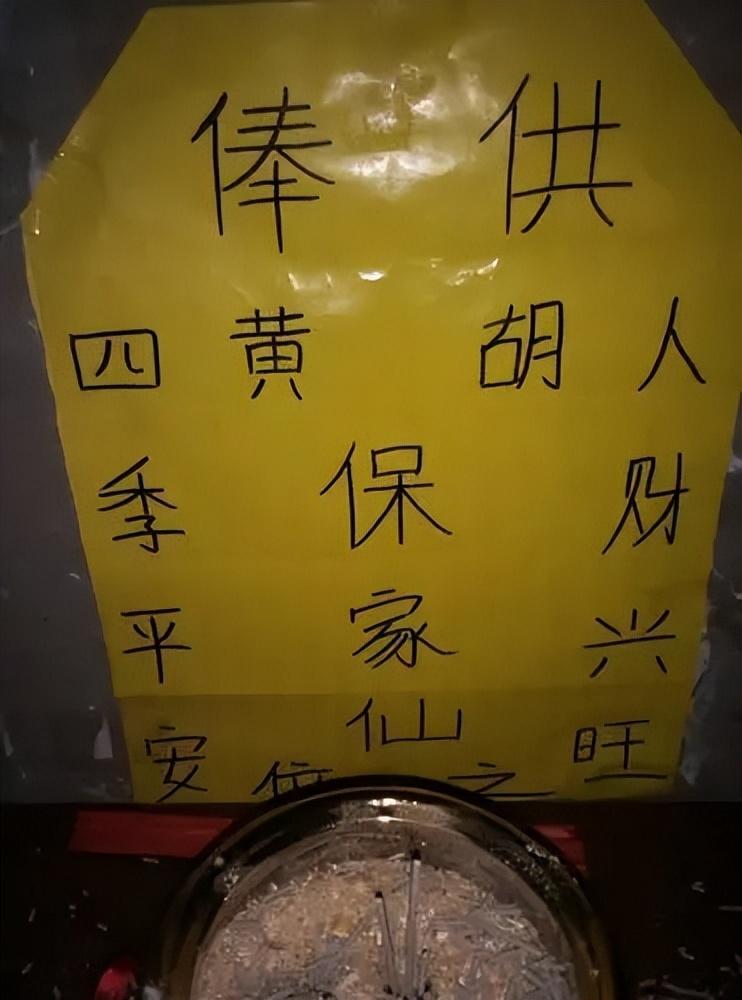 供俸
人财兴旺
胡黄
保
家
仙
之位
四季平安